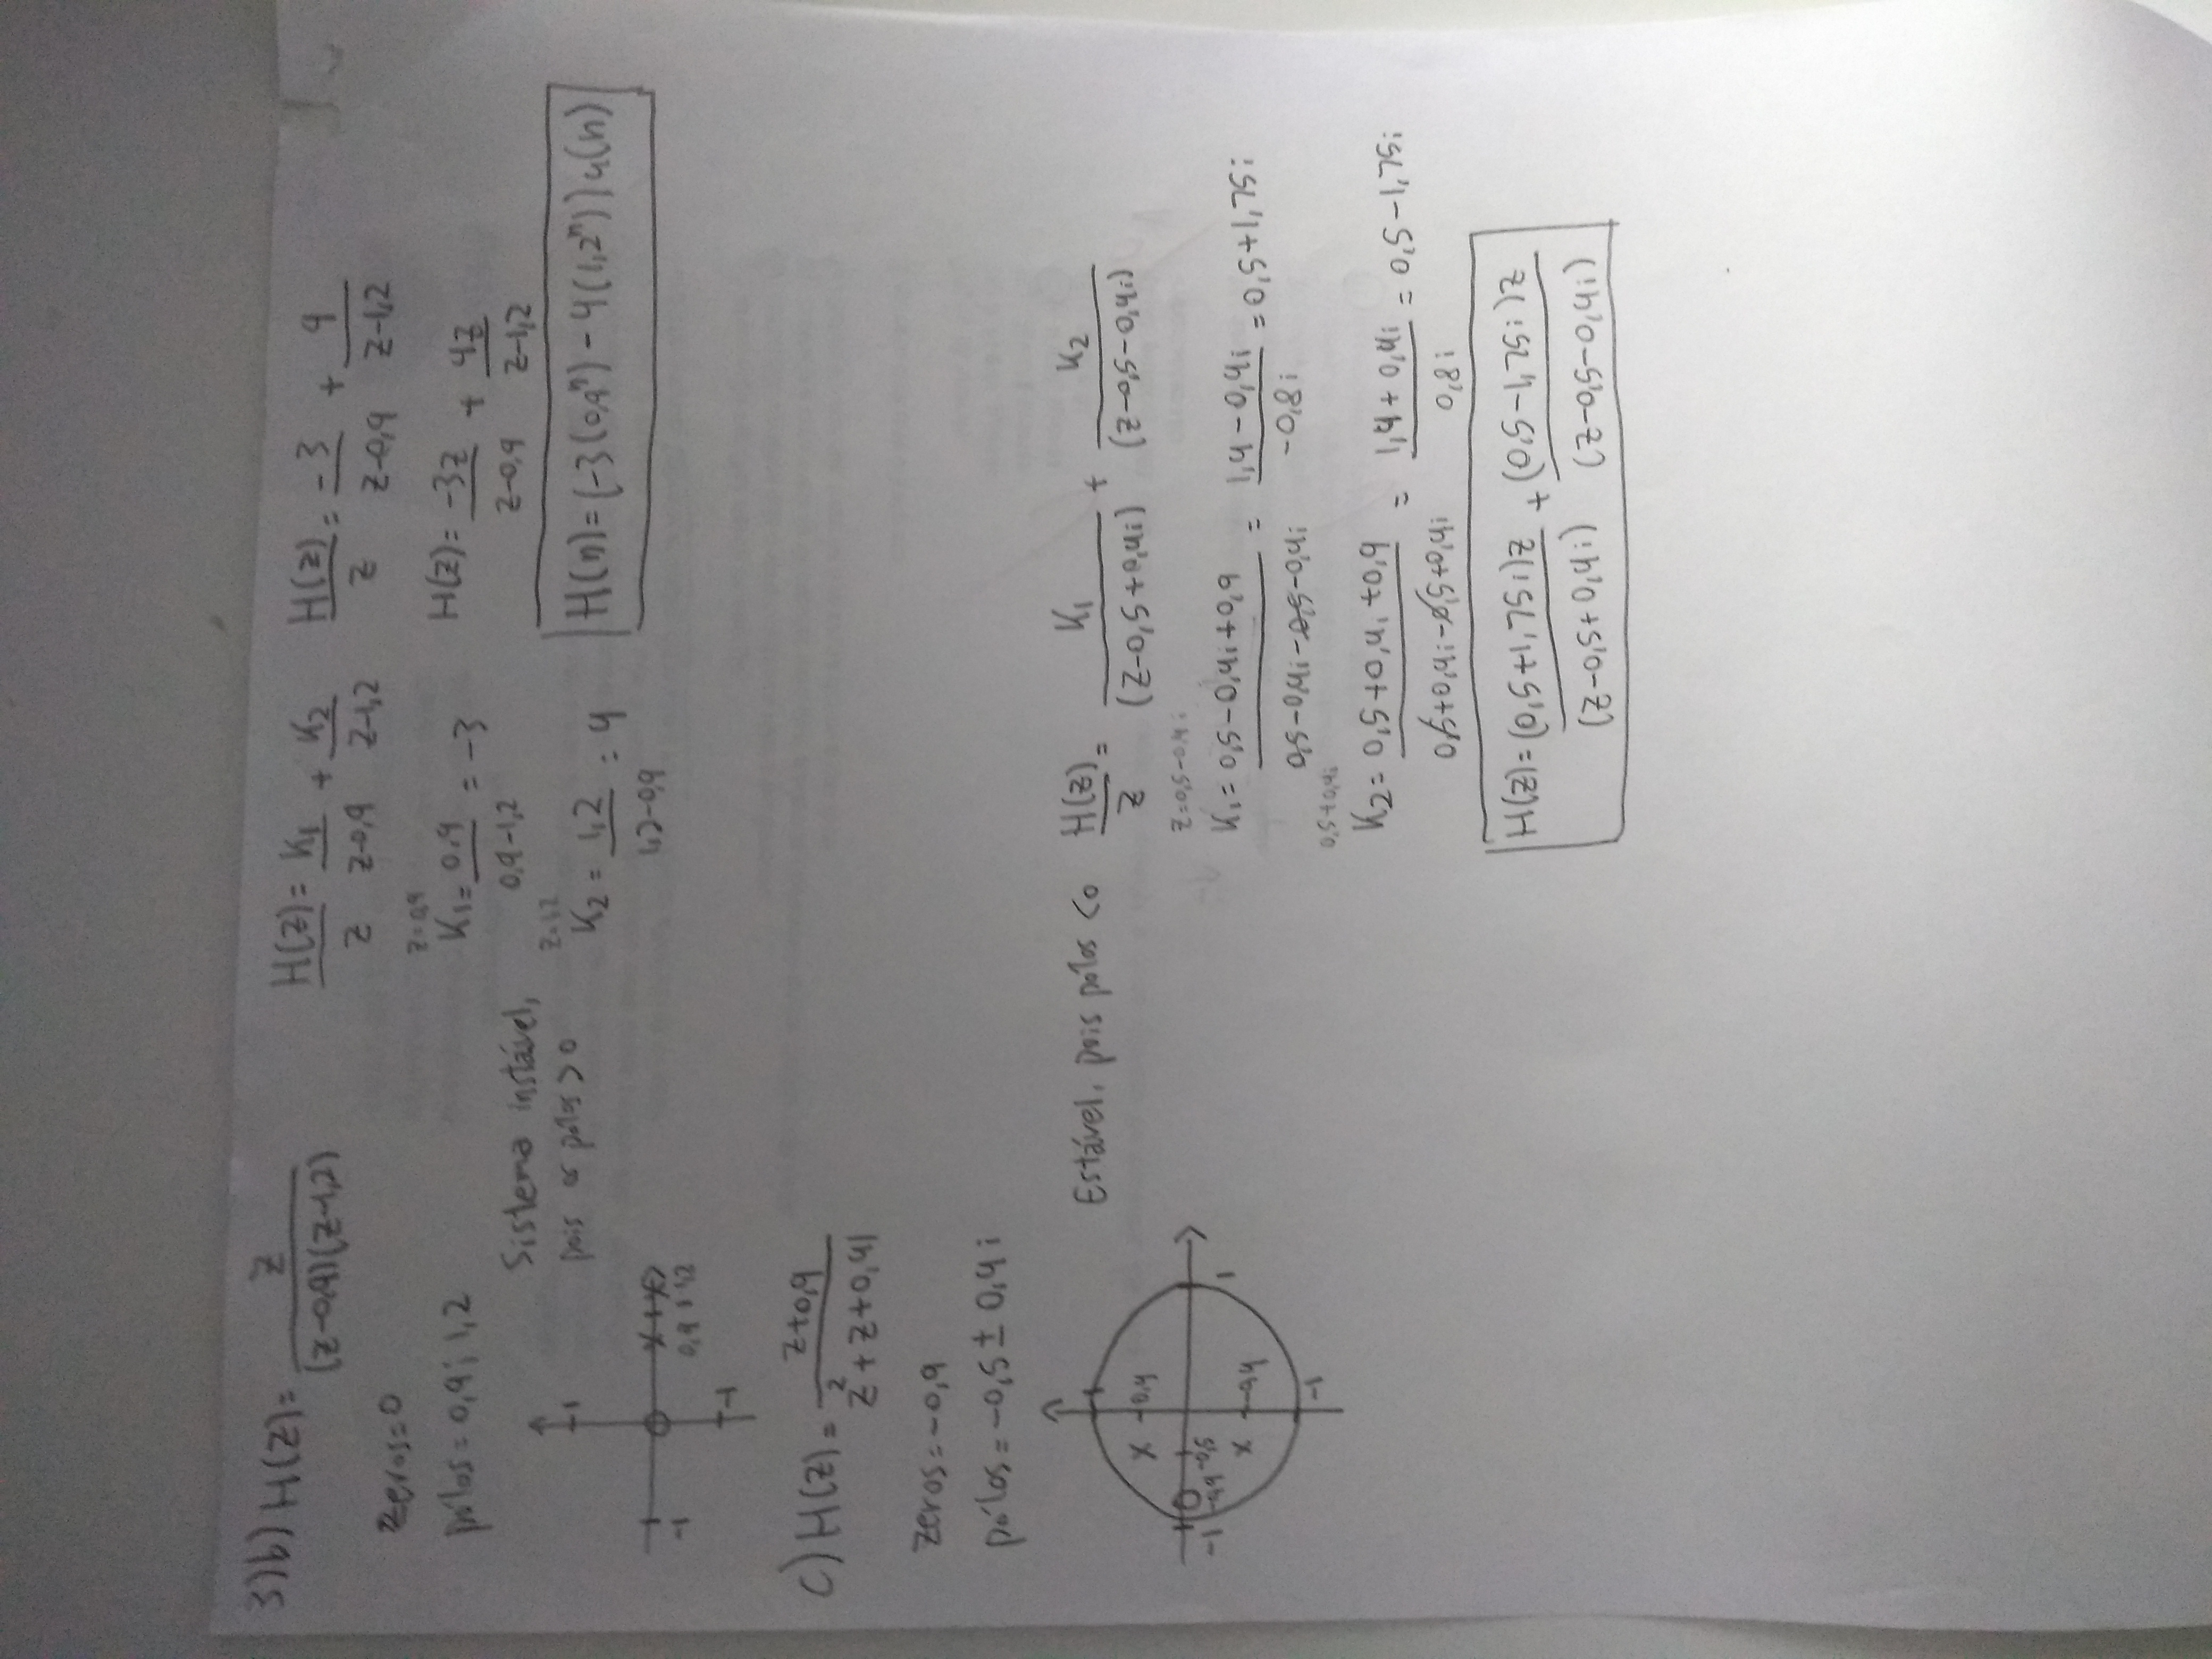 3)b) H(z)= z/((z-0,9)(z-1,2))
zeros=0
pólos=0,9; 1,2
Sistema instável,
pois os pólos >0
1
-1 0,9 1 1,2
-1
H(z)/z = K1/(z-0,9) + K2/(z-1,2)
z=0,9
K1= 0,9/(0,9-1,2) = -3
z=1,2
K2 = 1,2/(1,2-0,9) = 4
H(z)/z = -3/(z-0,9) + 4/(z-1,2)
H(z)= -3z/(z-0,9) + 4z/(z-1,2)
H(n)=(-3(0,9ⁿ)-4(1,2ⁿ))u(n)
c) H(z)= (z+0,9)/(z²+z+0,41)
zeros=-0,9
pólos=-0,5±0,4i
1
0,4
-1 -0,9 -0,5 1
-0,4
-1
Estável, pois pólos <0
H(z)/z = K1/(z-0,5+0,4i) + K2/(z-0,5-0,4i)
z=0,5-0,4i
K1= (0,5-0,4i+0,9)/(0,5-0,4i-0,5-0,4i) = (1,4-0,4i)/(-0,8i) = 0,5+1,75i
0,5+0,4i
K2= (0,5+0,4i+0,9)/(0,5+0,4i-0,5+0,4i) = (1,4+0,4i)/(0,8i) = 0,5-1,75i
H(z)= (0,5+1,75i)z/(z-0,5+0,4i) + (0,5-1,75i)z/(z-0,5-0,4i)